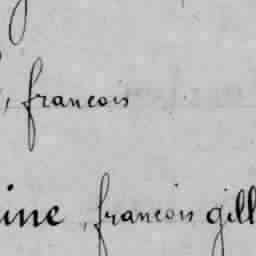 , francois
ine, francois gill